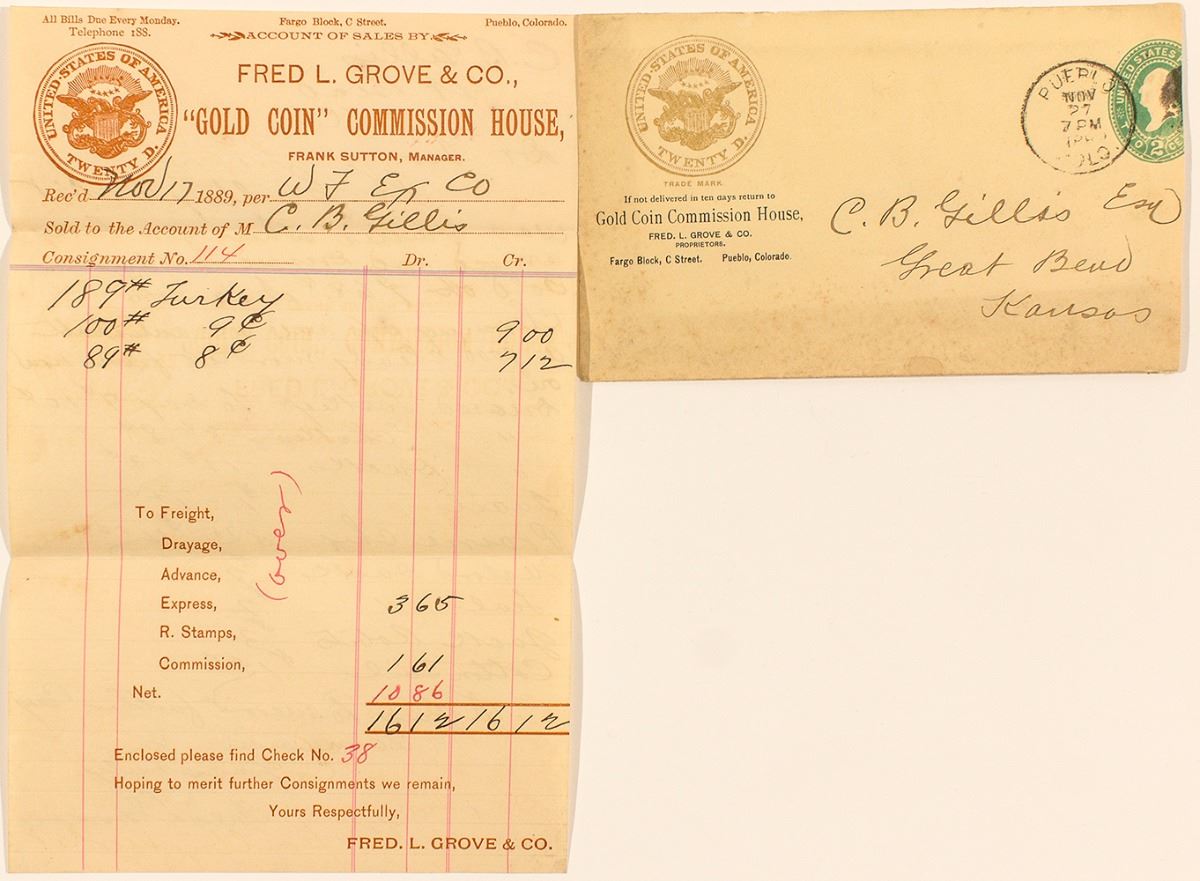 All Bills Due Every Monday.
Telephone 188.
Fargo Block, C Street.
Pueblo, Colorado.
ACCOUNT OF SALES BY
UNITED·STATES OF AMERICA
TWENTY D.
FRED L. GROVE & CO.,
"GOLD COIN" COMMISSION HOUSE,
FRANK SUTTON, MANAGER.
Rec'd Nov 17 1889, per W F Ex Co
Sold to the Account of M C. B. Gillis
Consignment No. 114 Dr. Cr.
189# Turkey
100# 9¢ 9 00
89# 8¢ 7 12
(over)
To Freight,
Drayage,
Advance,
Express, 3 65
R. Stamps,
Commission, 1 61
Net. 10 86
16 12 16 12
Enclosed please find Check No. 38
Hoping to merit further Consignments we remain,
Yours Respectfully,
FRED. L. GROVE & CO.
UNITED·STATES OF AMERICA
TWENTY D.
TRADE MARK
If not delivered in ten days return to
Gold Coin Commission House,
FRED. L. GROVE & CO.
PROPRIETORS.
Fargo Block, C Street. Pueblo, Colorado.
PUEBLO
NOV
27
7 PM
COLO.
UNITED STATES
2
C. B. Gillis Esq
Great Bend
Kansas